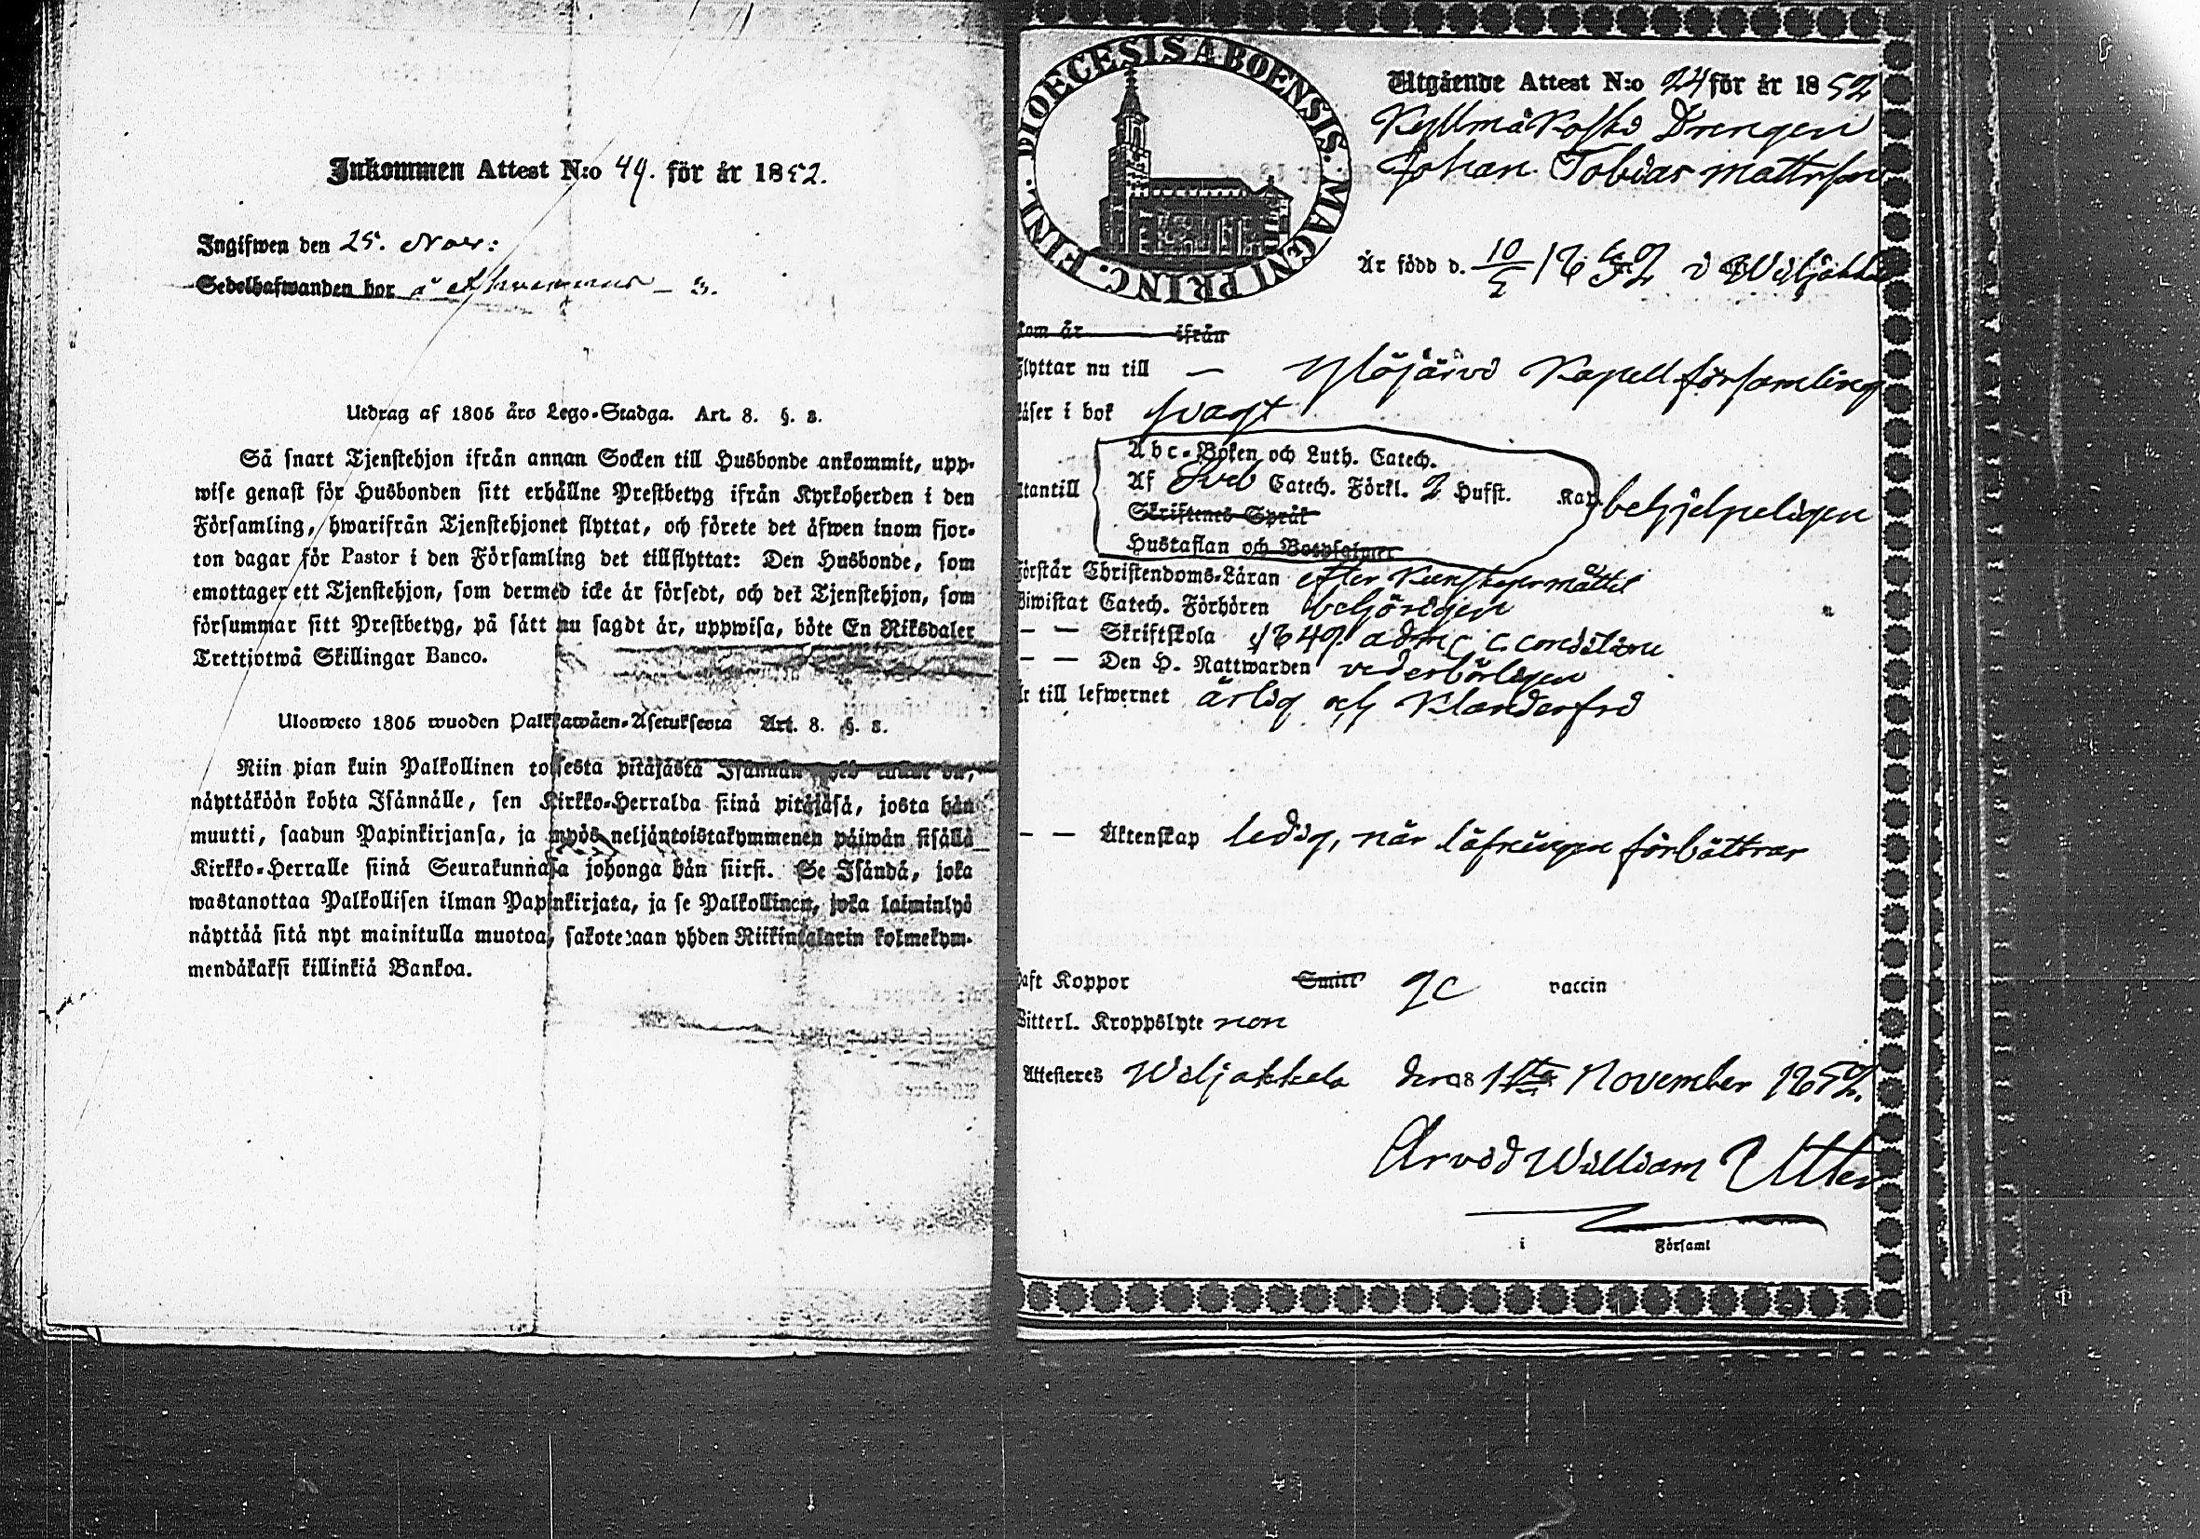 Inkommen Attest N:o 49. för år 1852.
Ingifwen den 25. Nov:
Sedelhafwanden bor å
Utdrag af 1805 års Lego-Stadga. Art. 8. §. 3.
Så snart Tjenstehjon ifrån annan Socken till Husbonde ankommit, upp-
wise genast för Husbonden sitt erhållne Prestbetyg ifrån Kyrkoherden i den
Församling, hwarifrån Tjenstehjonet flyttat, och förete det äfwen inom fjor-
ton dagar för Pastor i den Församling det tillflyttat: Den Husbonde, som
emottager ett Tjenstehjon, som dermed icke är försedt, och det Tjenstehjon, som
försummar sitt Prestbetyg, på sätt nu sagdt är, uppwisa, böte En Riksdaler
Trettiotwå Skillingar Banco.
Ulosweto 1805 wuoden Palkkawäen-Asetuksesta Art. 8. §. 3.
Niin pian kuin Palkollinen toisesta pitäjästä Isännän tullut on,
näyttäköön kohta Isännälle, sen Kirkko-Herralda siinä pitäjäsä, josta hän
muutti, saadun Papinkirjansa, ja myös neljäntoistakymmenen päiwän sisällä
Kirkko-Herralle siinä Seurakunnasa johonga hän siirsi. Se Isändä, joka
wastanottaa Palkollisen ilman Papinkirjata, ja se Palkollinen, joka laiminlyö
näyttää sitä nyt mainitulla muotoa, sakotetaan yhden Riikintalarin kolmekym-
mendäkaksi killinkiä Bankoa.
DIOECESIS ABOENSIS. MAGNI PRINC. FINL.
Utgående Attest N:o 24 för år 1852
Kyllmäkoski Drengen
Johan Tobias Mattsson
Är född d. 10/5 18 i Wiljakka
kom år ifrån
Flyttar nu till — Ylöjärvi Kapell församling
Läser i bok svagt
Utantill Abc-Boken och Luth. Catech.
Af Sveb Catech. Förkl. 2 Hufst. Kap. behjelpeligen
Skriftenes Språk
Hustaflan och Botpsalmer
Förstår Christendoms-Läran efter Kunskapsmåttet
Biwistat Catech. Förhören behörigen
— — Skriftskola 1849. adm. c. conditione
— — Den H. Nattwarden vederbörligen
Är till lefwernet ärlig och klanderfri
— — Äktenskap ledig, när läsningen förbättras
Haft Koppor Smitt vaccin
Witterl. Kroppslyte non
Attesteres Wiljakkala den 18 1sta November 1852.
Arvid William Utter
i Församl